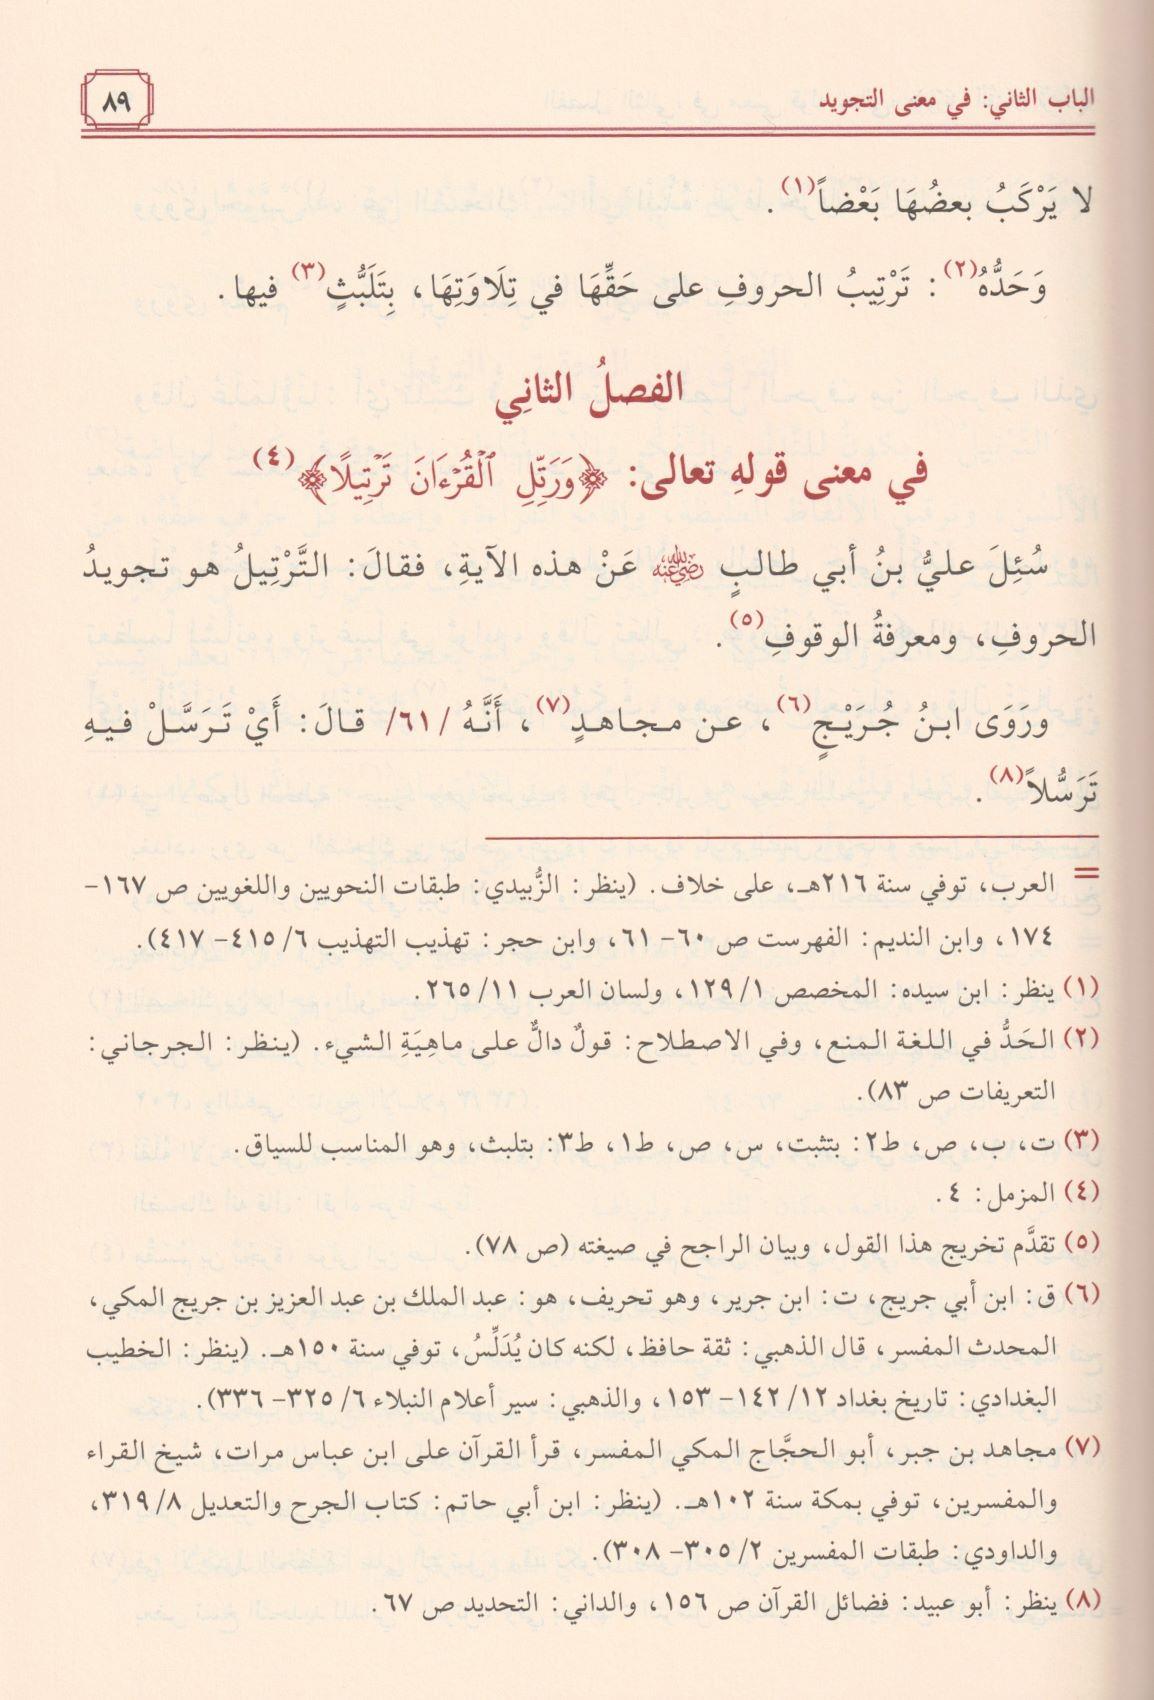 الباب الثاني: في معنى التجويد
٨٩
لا يَرْكَبُ بعضُهَا بَعْضاً(١).
وَحَدُّهُ(٢): تَرْتِيبُ الحروفِ على حَقِّهَا في تِلَاوَتِهَا، بِتَلَبُّثٍ(٣) فيها.
الفصلُ الثانِي
في معنى قولهِ تعالى: ﴿وَرَتِّلِ ٱلْقُرْءَانَ تَرْتِيلًا﴾(٤)
سُئِلَ عليُّ بنُ أبي طالبٍ رضي الله عنه عَنْ هذه الآيةِ، فقالَ: التَّرْتِيلُ هو تجويدُ
الحروفِ، ومعرفةُ الوقوفِ(٥).
ورَوَى ابنُ جُرَيْجٍ(٦)، عن مجاهدٍ(٧)، أَنَّهُ /٦١/ قالَ: أَيْ تَرَسَّلْ فيهِ
تَرَسُّلاً(٨).
= العرب، توفي سنة ٢١٦هـ، على خلاف. (ينظر: الزُّبيدي: طبقات النحويين واللغويين ص ١٦٧-
١٧٤، وابن النديم: الفهرست ص ٦٠- ٦١، وابن حجر: تهذيب التهذيب ٦/ ٤١٥- ٤١٧).
(١) ينظر: ابن سيده: المخصص ١/ ١٢٩، ولسان العرب ١١/ ٢٦٥.
(٢) الحَدُّ في اللغة المنع، وفي الاصطلاح: قولٌ دالٌّ على ماهِيَةِ الشيء. (ينظر: الجرجاني:
التعريفات ص ٨٣).
(٣) ت، ب، ص، ط٢: بتثبت، س، ص، ط١، ط٣: بتلبث، وهو المناسب للسياق.
(٤) المزمل: ٤.
(٥) تقدَّم تخريج هذا القول، وبيان الراجح في صيغته (ص ٧٨).
(٦) ق: ابن أبي جريج، ت: ابن جرير، وهو تحريف، هو: عبد الملك بن عبد العزيز بن جريج المكي،
المحدث المفسر، قال الذهبي: ثقة حافظ، لكنه كان يُدَلِّسُ، توفي سنة ١٥٠هـ. (ينظر: الخطيب
البغدادي: تاريخ بغداد ١٢/ ١٤٢- ١٥٣، والذهبي: سير أعلام النبلاء ٦/ ٣٢٥- ٣٣٦).
(٧) مجاهد بن جبر، أبو الحجَّاج المكي المفسر، قرأ القرآن على ابن عباس مرات، شيخ القراء
والمفسرين، توفي بمكة سنة ١٠٢هـ. (ينظر: ابن أبي حاتم: كتاب الجرح والتعديل ٨/ ٣١٩،
والداودي: طبقات المفسرين ٢/ ٣٠٥- ٣٠٨).
(٨) ينظر: أبو عبيد: فضائل القرآن ص ١٥٦، والداني: التحديد ص ٦٧.